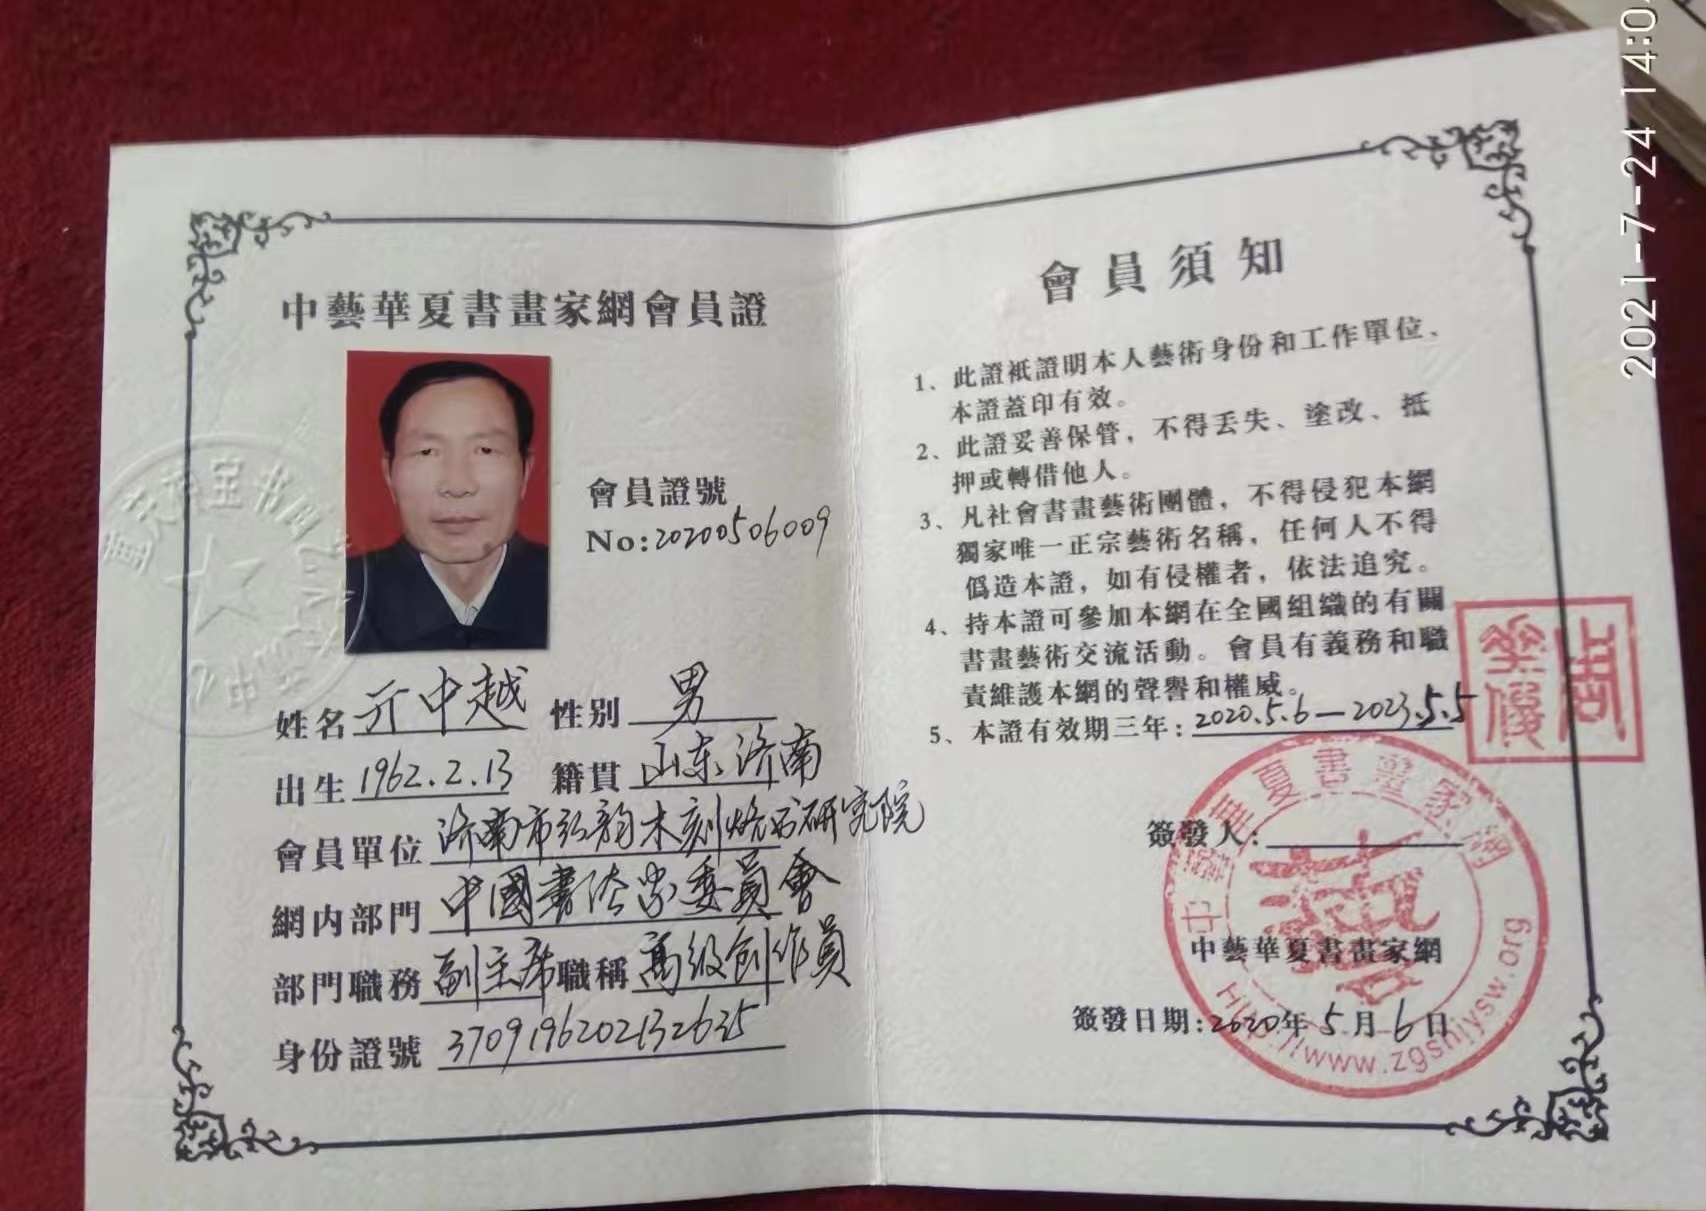 中藝華夏書畫家網會員證
會員證號
No:20200506009
姓名 亓中越 性别 男
出生 1962.2.13 籍貫 山东济南
會員單位 济南市弘韵木刻烙画研究院
網内部門 中國書法家委員會
部門職務 副主席 職稱 高级创作員
身份證號 3709196202132635
會員須知
1、此證衹證明本人藝術身份和工作單位、
本證蓋印有效。
2、此證妥善保管，不得丢失、塗改、抵
押或轉借他人。
3、凡社會書畫藝術團體，不得侵犯本網
獨家唯一正宗藝術名稱，任何人不得
僞造本證，如有侵權者，依法追究。
4、持本證可參加本網在全國組織的有關
書畫藝術交流活動。會員有義務和職
責維護本網的聲譽和權威。
5、本證有效期三年：2020.5.6—2023.5.5
簽發人：
中藝華夏書畫家網
簽發日期：2020年5月6日
中藝華夏書畫家網
Http://www.zgshjysw.org
2021-7-24 14:0